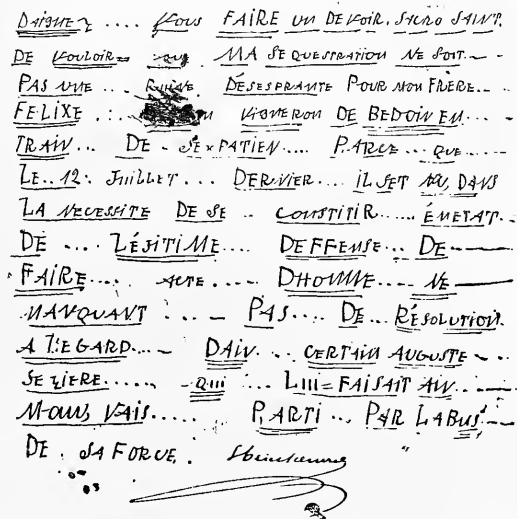 DAIGNEZ .... VOUS FAIRE UN DEVOIR. SACRO SAINT.
DE VOULOIR= QUE MA SEQUESTRATION NE SOIT.—
PAS UNE ... RUINE. DÉSESPRANTE POUR MON FRÈRE...
FELIXE ... VIGNERON DE BEDOIN EM....
TRAIN... DE - SE×PATIEN.... PARCE ... QUE....
LE.. 12: JUILLET .... DERNIER.... IL SET DANS
LA NECESSITE DE SE .. CONSTITIR..... ÉMETAT.
DE .... LÉJITIME.... DEFFENSE... DE———
FAIRE..... ACTE .... DHOMME.... NE——
MANQUANT .... PAS.... DE... RÉSOLUTION.
A L'EGARD.... DAIN... CERTAIN AUGUSTE - ..
SELIERE..... QUI ... LUI=FAISAIT AN...—
MOUVAIS..... PARTI ... PAR LABUS'.—
DE . SA FORCE.